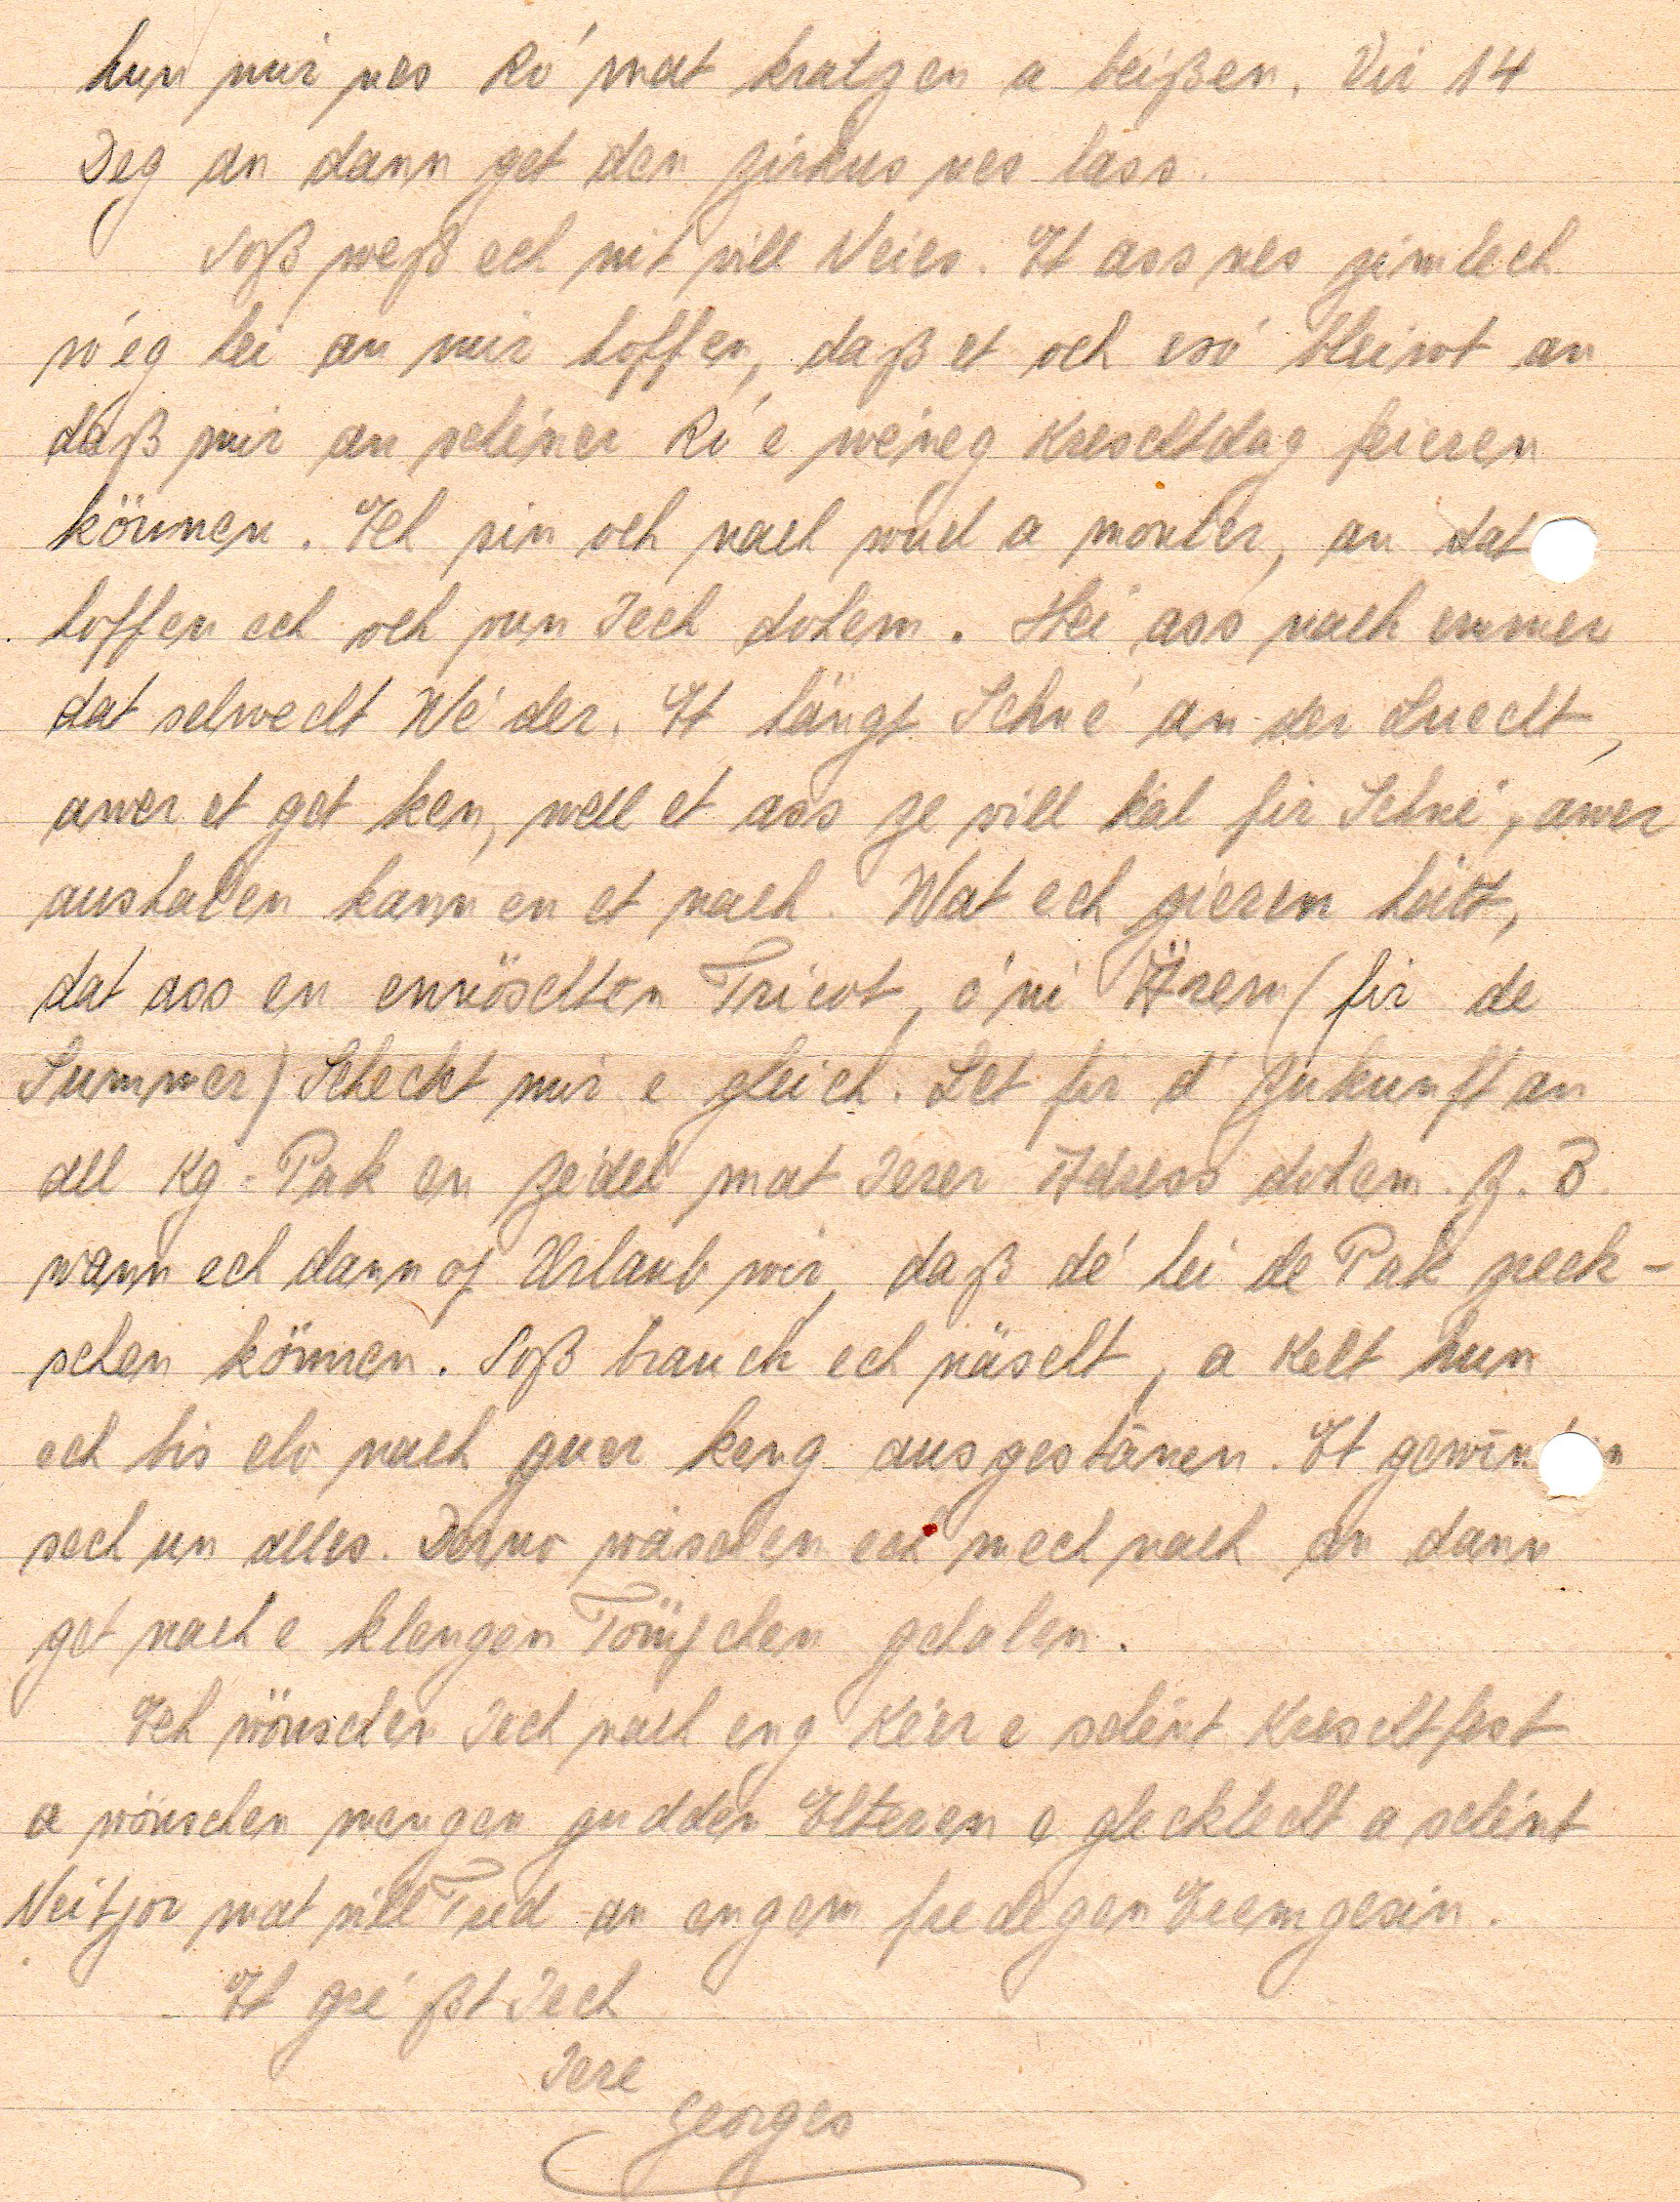 hun mir nes Ró mat kratzen a beißen. Vir 14
Deg an dann get den Zirkus nes lass.
Soß weß ech nit vill Neies. Et ass nes zimlech
róeg hei an mir hoffen, daß et och esó bleiwt an
daß mir an schéner Ró e wéneg Kreschtdag feieren
können. Ech sin och nach wuel a monter, an dat
hoffen ech och vun Iech dohem. Hei ass nach emmer
dat selwecht Wé'der. Et hängt Schné an der Luecht,
awer et get ken, well et ass ze vill kal fir Schné, awer
aushalen kann en et nach. Wat ech gieren hätt,
dat ass en enneschten Tricot, ó'ni Ärem (fir de
Summer) Scheckt mir e gleich. Let fir d'Zukunft an
all Kg-Pak en Zé'del mat Ierer Adress dohem. Z. B.
wann ech dann op Urlaub wir, daß dé hei de Pak zreck-
schen können. Soß brauch ech näscht, a Kelt hun
ech bis elo nach guer keng ausgestanen. Et gewin en
sech un alles. Dorno wäschen ech mech nach an dann
get nach e klengen Töüfchen gehalen.
Ech wönschen Iech nach eng Kéer e schéint Kreschtfest
a wönschen mengen gudden Elteren e glecklecht a schéint
Neitjor mat vill Freed an engem fredegen Erëmgesin.
Et gré ßt Iech
Iere
Georges